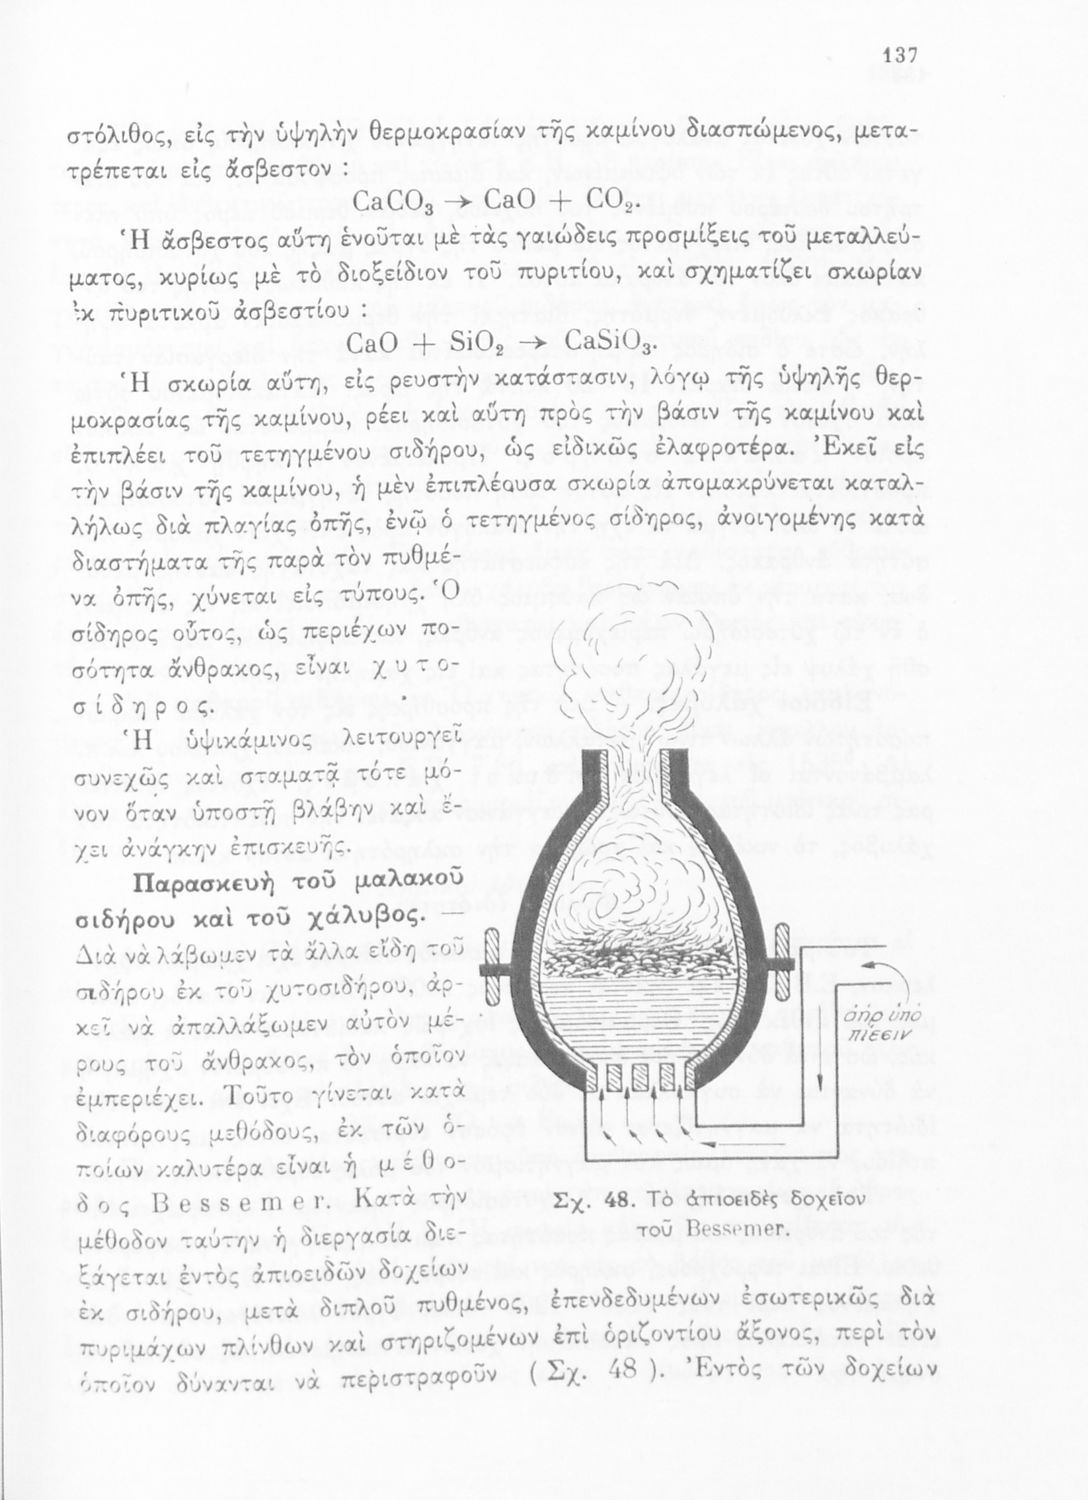 137
στόλιθος, εἰς τὴν ὑψηλὴν θερμοκρασίαν τῆς καμίνου διασπώμενος, μετα-
τρέπεται εἰς ἄσβεστον :
CaCO₃ → CaO + CO₂.
Ἡ ἄσβεστος αὕτη ἑνοῦται μὲ τὰς γαιώδεις προσμίξεις τοῦ μεταλλεύ-
ματος, κυρίως μὲ τὸ διοξείδιον τοῦ πυριτίου, καὶ σχηματίζει σκωρίαν
ἐκ πυριτικοῦ ἀσβεστίου :
CaO + SiO₂ → CaSiO₃.
Ἡ σκωρία αὕτη, εἰς ρευστὴν κατάστασιν, λόγῳ τῆς ὑψηλῆς θερ-
μοκρασίας τῆς καμίνου, ρέει καὶ αὕτη πρὸς τὴν βάσιν τῆς καμίνου καὶ
ἐπιπλέει τοῦ τετηγμένου σιδήρου, ὡς εἰδικῶς ἐλαφροτέρα. Ἐκεῖ εἰς
τὴν βάσιν τῆς καμίνου, ἡ μὲν ἐπιπλέουσα σκωρία ἀπομακρύνεται καταλ-
λήλως διὰ πλαγίας ὀπῆς, ἐνῷ ὁ τετηγμένος σίδηρος, ἀνοιγομένης κατὰ
διαστήματα τῆς παρὰ τὸν πυθμέ-
να ὀπῆς, χύνεται εἰς τύπους. Ὁ
σίδηρος οὗτος, ὡς περιέχων πο-
σότητα ἄνθρακος, εἶναι χυτο-
σίδηρος.
Ἡ ὑψικάμινος λειτουργεῖ
συνεχῶς καὶ σταματᾷ τότε μό-
νον ὅταν ὑποστῇ βλάβην καὶ ἔ-
χει ἀνάγκην ἐπισκευῆς.
Παρασκευὴ τοῦ μαλακοῦ
σιδήρου καὶ τοῦ χάλυβος. —
Διὰ νὰ λάβωμεν τὰ ἄλλα εἴδη τοῦ
σιδήρου ἐκ τοῦ χυτοσιδήρου, ἀρ-
κεῖ νὰ ἀπαλλάξωμεν αὐτὸν μέ-
ρους τοῦ ἄνθρακος, τὸν ὁποῖον
ἐμπεριέχει. Τοῦτο γίνεται κατὰ
διαφόρους μεθόδους, ἐκ τῶν ὁ-
ποίων καλυτέρα εἶναι ἡ μέθο-
δος Bessemer. Κατὰ τὴν
μέθοδον ταύτην ἡ διεργασία διε-
ξάγεται ἐντὸς ἀπιοειδῶν δοχείων
ἐκ σιδήρου, μετὰ διπλοῦ πυθμένος, ἐπενδεδυμένων ἐσωτερικῶς διὰ
πυριμάχων πλίνθων καὶ στηριζομένων ἐπὶ ὁριζοντίου ἄξονος, περὶ τὸν
ὁποῖον δύνανται νὰ περιστραφοῦν ( Σχ. 48 ). Ἐντὸς τῶν δοχείων
ἀὴρ ὑπὸ
πίεσιν
Σχ. 48. Τὸ ἀπιοειδὲς δοχεῖον
τοῦ Bessemer.